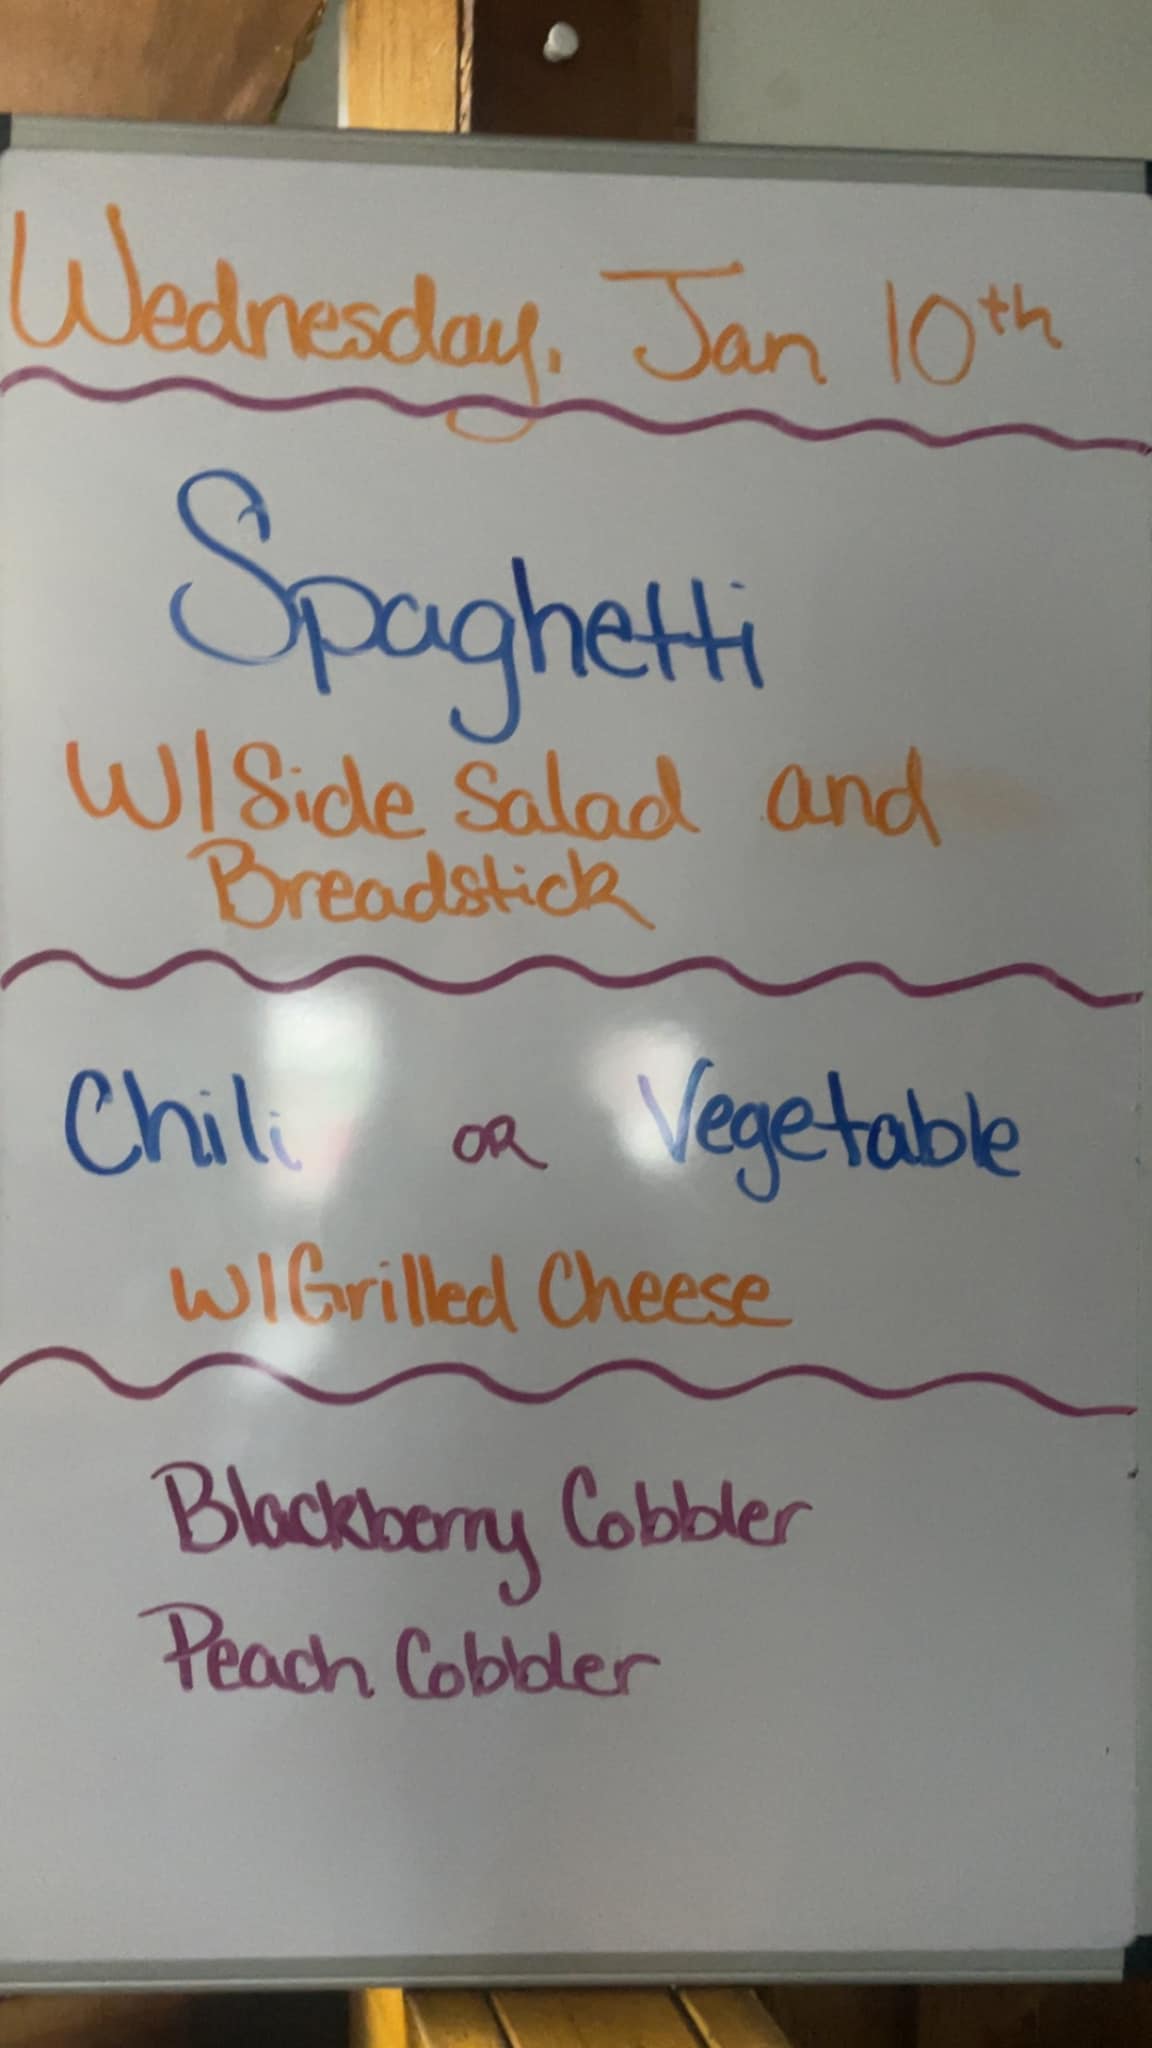 Wednesday, Jan 10th
Spaghetti
W/Side Salad and
Breadstick
Chili OR Vegetable
W/Grilled Cheese
Blackberry Cobbler
Peach Cobbler